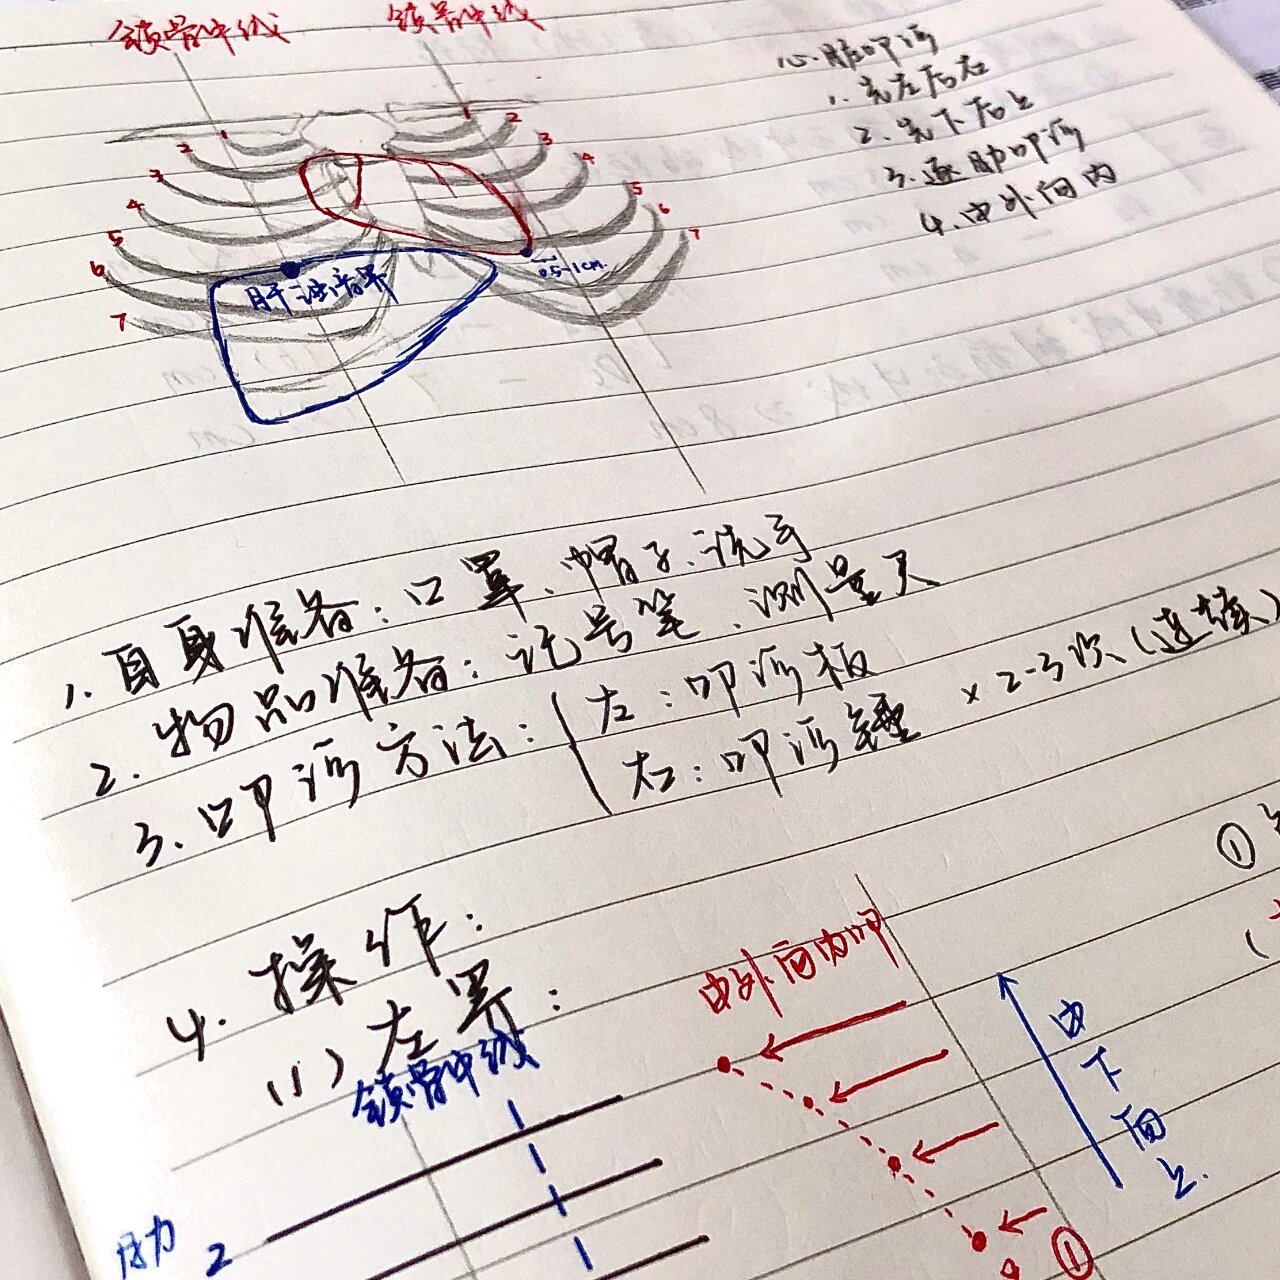 锁骨中线 锁骨中线
心脏叩诊
1. 先左后右
2. 先下后上
3. 逐肋叩诊
4. 由外向内
1 2 3 4 5 6 7
1 2 3 4 5 6 7
肝浊音界
0.5-1cm.
1. 自身准备:口罩、帽子、洗手
2. 物品准备:记号笔、测量尺
3. 叩诊方法: 左:叩诊板
右:叩诊锤 ×2-3次(连续)
4. 操作:
(1) 左界:
锁骨中线
由外向内叩
由下向上.
肋 2
①
①